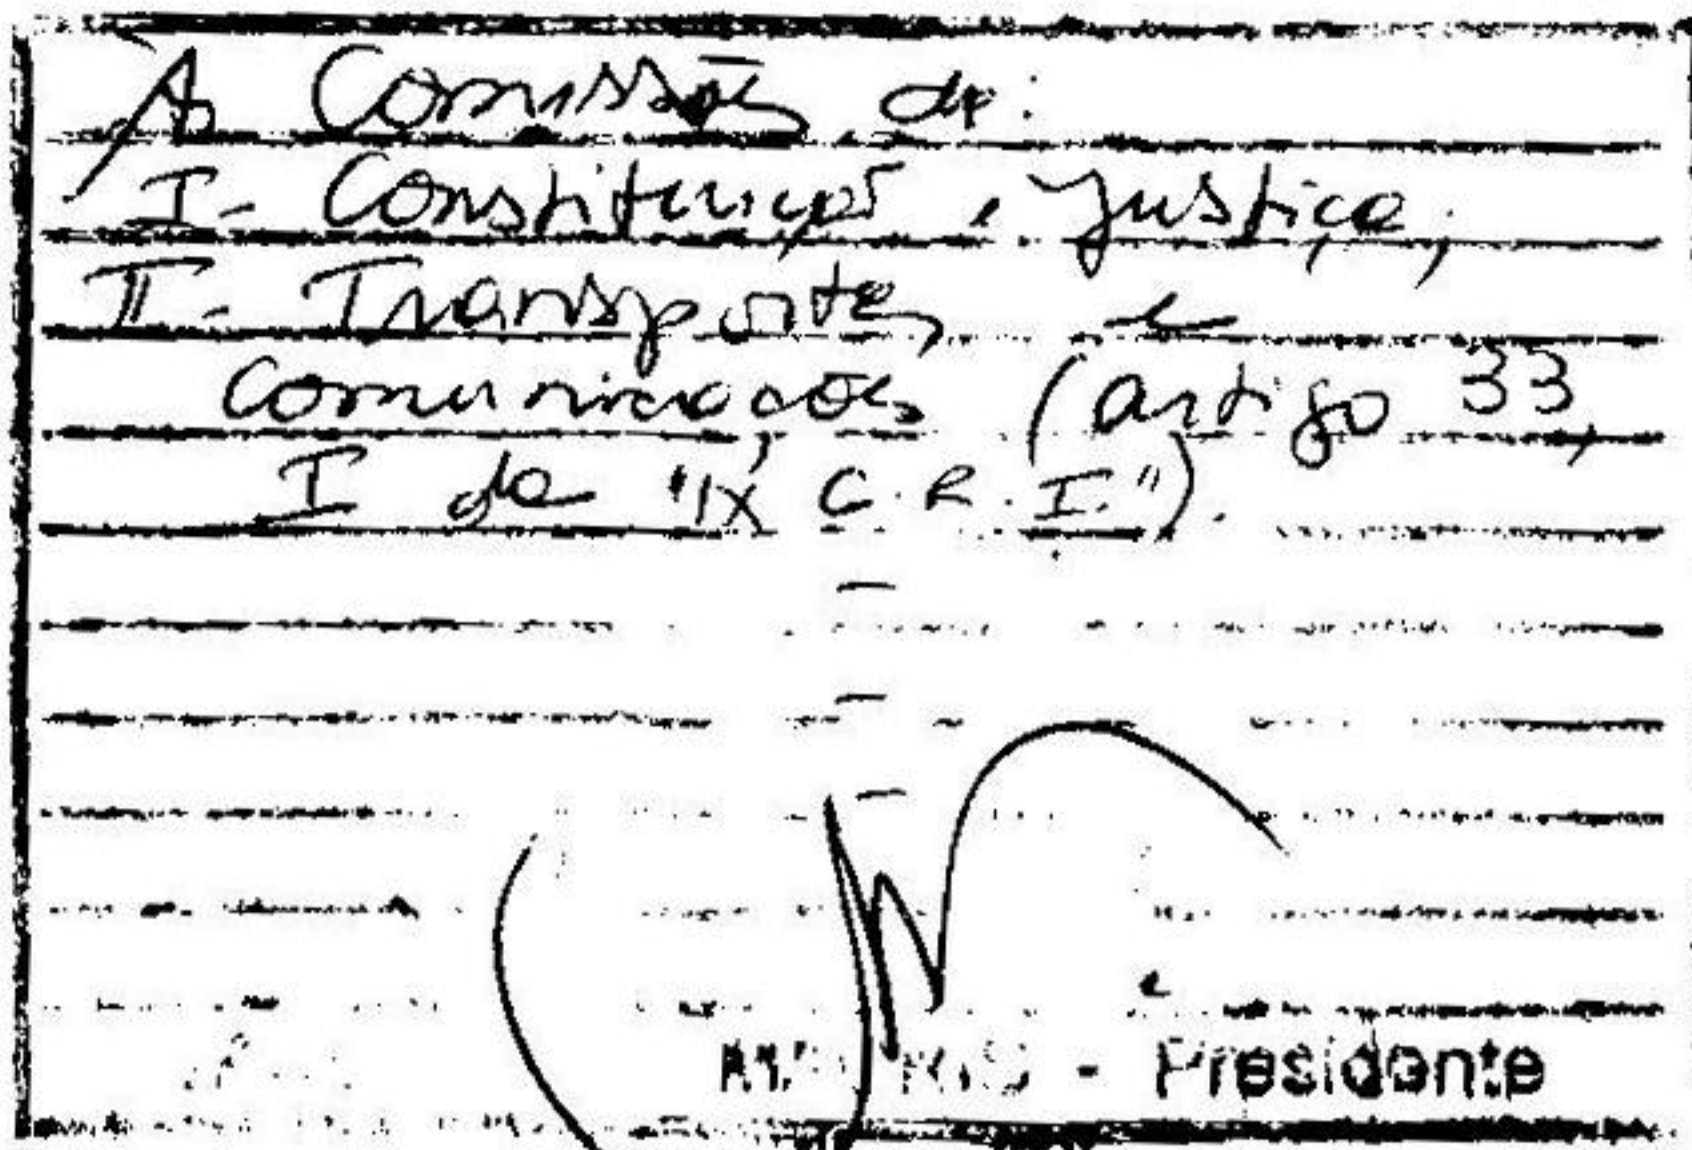 Às Comissões de:
I- Constituição e Justiça;
II- Transportes e
Comunicações (artigo 33,
I da "IX C.R.I.").
- Presidente